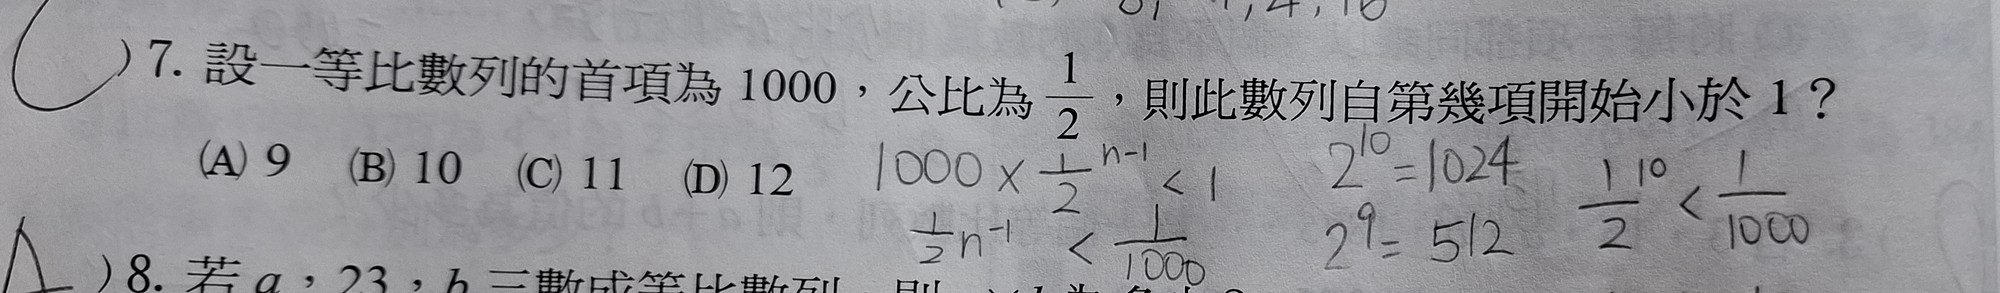 C )7. 設一等比數列的首項為 1000，公比為 1/2，則此數列自第幾項開始小於 1？
(A) 9 (B) 10 (C) 11 (D) 12
1000 × 1/2 ^n-1 < 1
1/2 n^-1 < 1/1000
2^10 = 1024
2^9 = 512
1/2 ^10 < 1/1000
A )8. 若 a，23，b 三數成等比數列